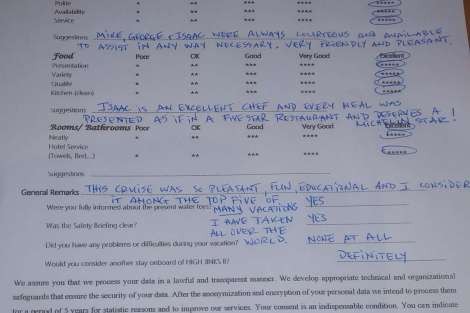 Polite * ** *** **** *****
Availability * ** *** **** *****
Service * ** *** **** *****
Suggestions MIKE, GEORGE & ISAAC WERE ALWAYS COURTEOUS AND AVAILABLE
TO ASSIST IN ANY WAY NECESSARY. VERY FRIENDLY AND PLEASANT.
Food Poor OK Good Very Good Excellent
Presentation * ** *** **** *****
Variety * ** *** **** *****
Quality * ** *** **** *****
Kitchen (clean) * ** *** **** *****
Suggestions ISAAC IS AN EXCELLENT CHEF AND EVERY MEAL WAS
PRESENTED AS IF IN A FIVE STAR RESTAURANT AND DESERVES A
MICHELIN STAR!
Rooms/ Bathrooms Poor OK Good Very Good Excellent
Neatly * ** *** **** *****
Hotel Service
(Towels, Bed,..) * ** *** **** *****
Suggestions
General Remarks THIS CRUISE WAS SO PLEASANT, FUN, EDUCATIONAL AND I CONSIDER
IT AMONG THE TOP FIVE OF
Were you fully informed about the present water fees? MANY VACATIONS YES
I HAVE TAKEN
Was the Safety Briefing clear? YES
ALL OVER THE
WORLD.
Did you have any problems or difficulties during your vacation? NONE AT ALL
Would you consider another stay onboard of HIGH JINKS II? DEFINITELY
We assure you that we process your data in a lawful and transparent manner. We develop appropriate technical and organizational
safeguards that ensure the security of your data. After the anonymization and encryption of your personal data we intend to process them
for a period of 5 years for statistic reasons and to improve our services. Your consent is an indispensable condition. You can indicate